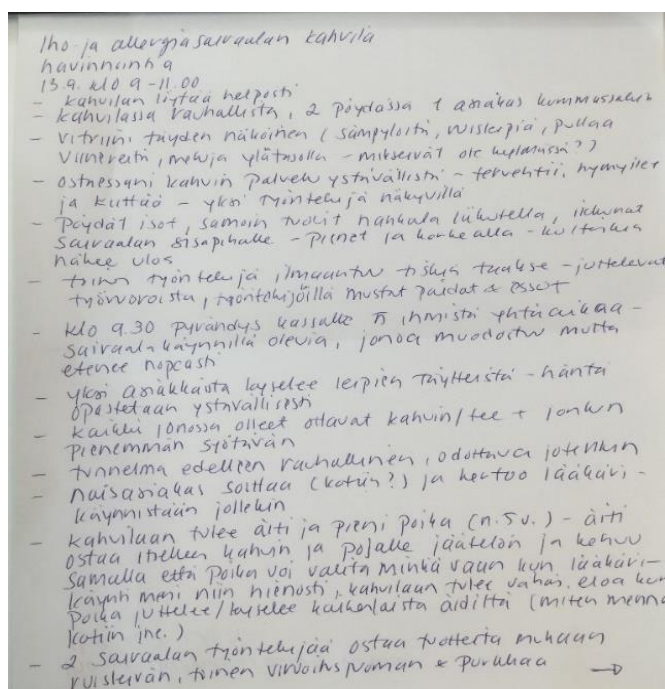 Iho- ja allergiasairaalan kahvila
havinnainha
13.9. klo 9-11.00
- kahvilan löytää helposti
- kahvilassa rauhallista, 2 pöydässä 1 asiakas kummassakin
- vitriini täyden näköinen (sämpylöitä, ruisleipiä, pullaa
viinereitä, mehuja ylätasolla - mikseivät ole kylmässä?)
- ostaessani kahvin palvelu ystävällistä - tervehtii, hymyilee
ja kiittää - yksi työntekijä näkyvillä
- Pöydät isot, samoin tuolit hankala liikutella, ikkunat
sairaalan sisäpihalle - pienet ja korkealla - kuitenkin
näkee ulos
- toinen työntekijä ilmaantuu tiskin taakse - juttelevat
työvuoroista, työntekijöillä mustat paidat & essut
- klo 9.30 pyrähdys kassalle 5 ihmistä yhtä aikaa -
sairaalakäynnillä olevia, jonoa muodostuu mutta
etenee nopeasti
- yksi asiakkaista kyselee leipien täytteistä - häntä
opastetaan ystävällisesti
- kaikki jonossa olleet ottavat kahvin/tee + jonkin
pienemmän syötävän
- tunnelma edelleen rauhallinen, odottava jotenkin
- naisasiakas soittaa (kotiin?) ja kertoo lääkäri-
käynnistään jollekin
- kahvilaan tulee äiti ja pieni poika (n. 5 v.) - äiti
ostaa itselleen kahvin ja pojalle jäätelön ja kehuu
samalla että poika voi valita minkä vaan kun lääkäri-
käynti meni niin hienosti, kahvilaan tulee vähäs. eloa kun
poika juttelee/kyselee kaikenlaista äidiltä (miten mennä
kotiin jne.)
- 2 sairaalan työntekijää ostaa tuotteita mukaan
ruisleivän, toinen virvoitusjuoman & purkkaa →